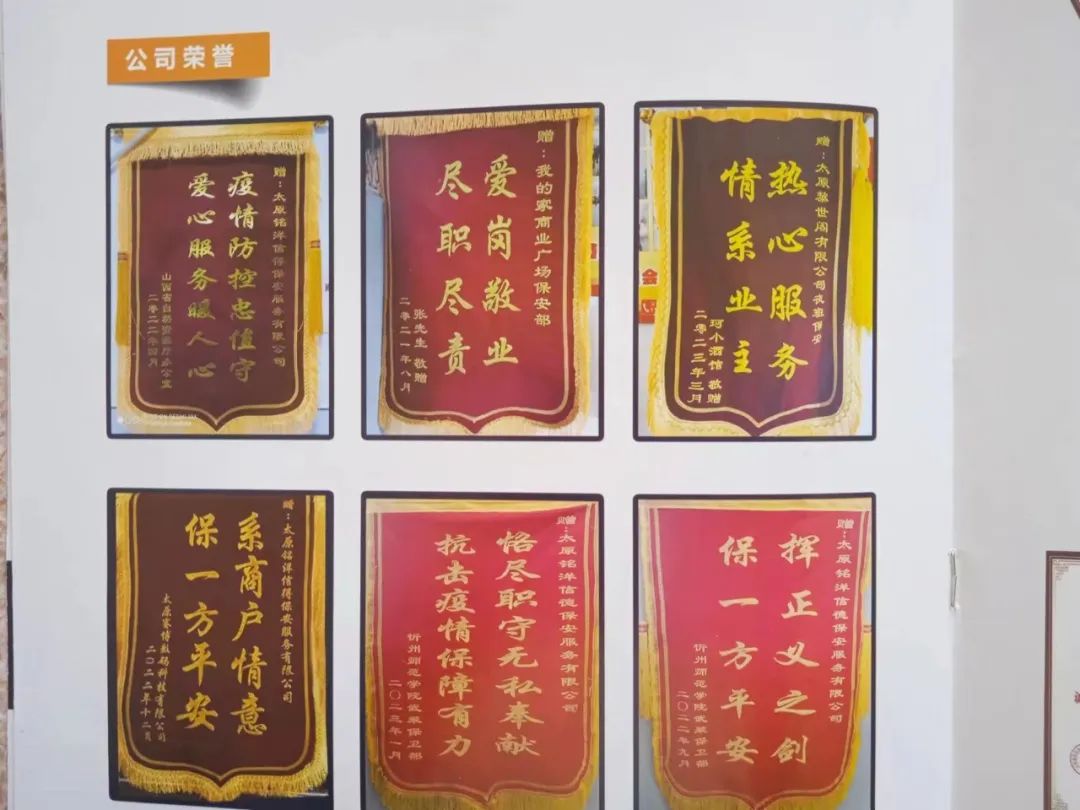 公司荣誉
赠：太原铭洋信得保安服务有限公司
疫情防控忠值守
爱心服务暖人心
山西省自然资源厅办公室
二零二二年四月
赠：我的家商业广场保安部
爱岗敬业
尽职尽责
张先生 敬赠
二零二一年八月
赠：太原黎世阁有限公司夜班保安
热心服务
情系业主
珂小酒馆 敬赠
二零二三年三月
赠：太原铭洋信得保安服务有限公司
系商户情意
保一方平安
太原赛博数码科技有限公司
二〇二二年十二月
赠：太原铭洋信德保安服务有限公司
恪尽职守无私奉献
抗击疫情保障有力
忻州师范学院武装保卫部
二〇二三年一月
赠：太原铭洋信德保安服务有限公司
挥正义之剑
保一方平安
忻州师范学院武装保卫部
二〇二二年九月